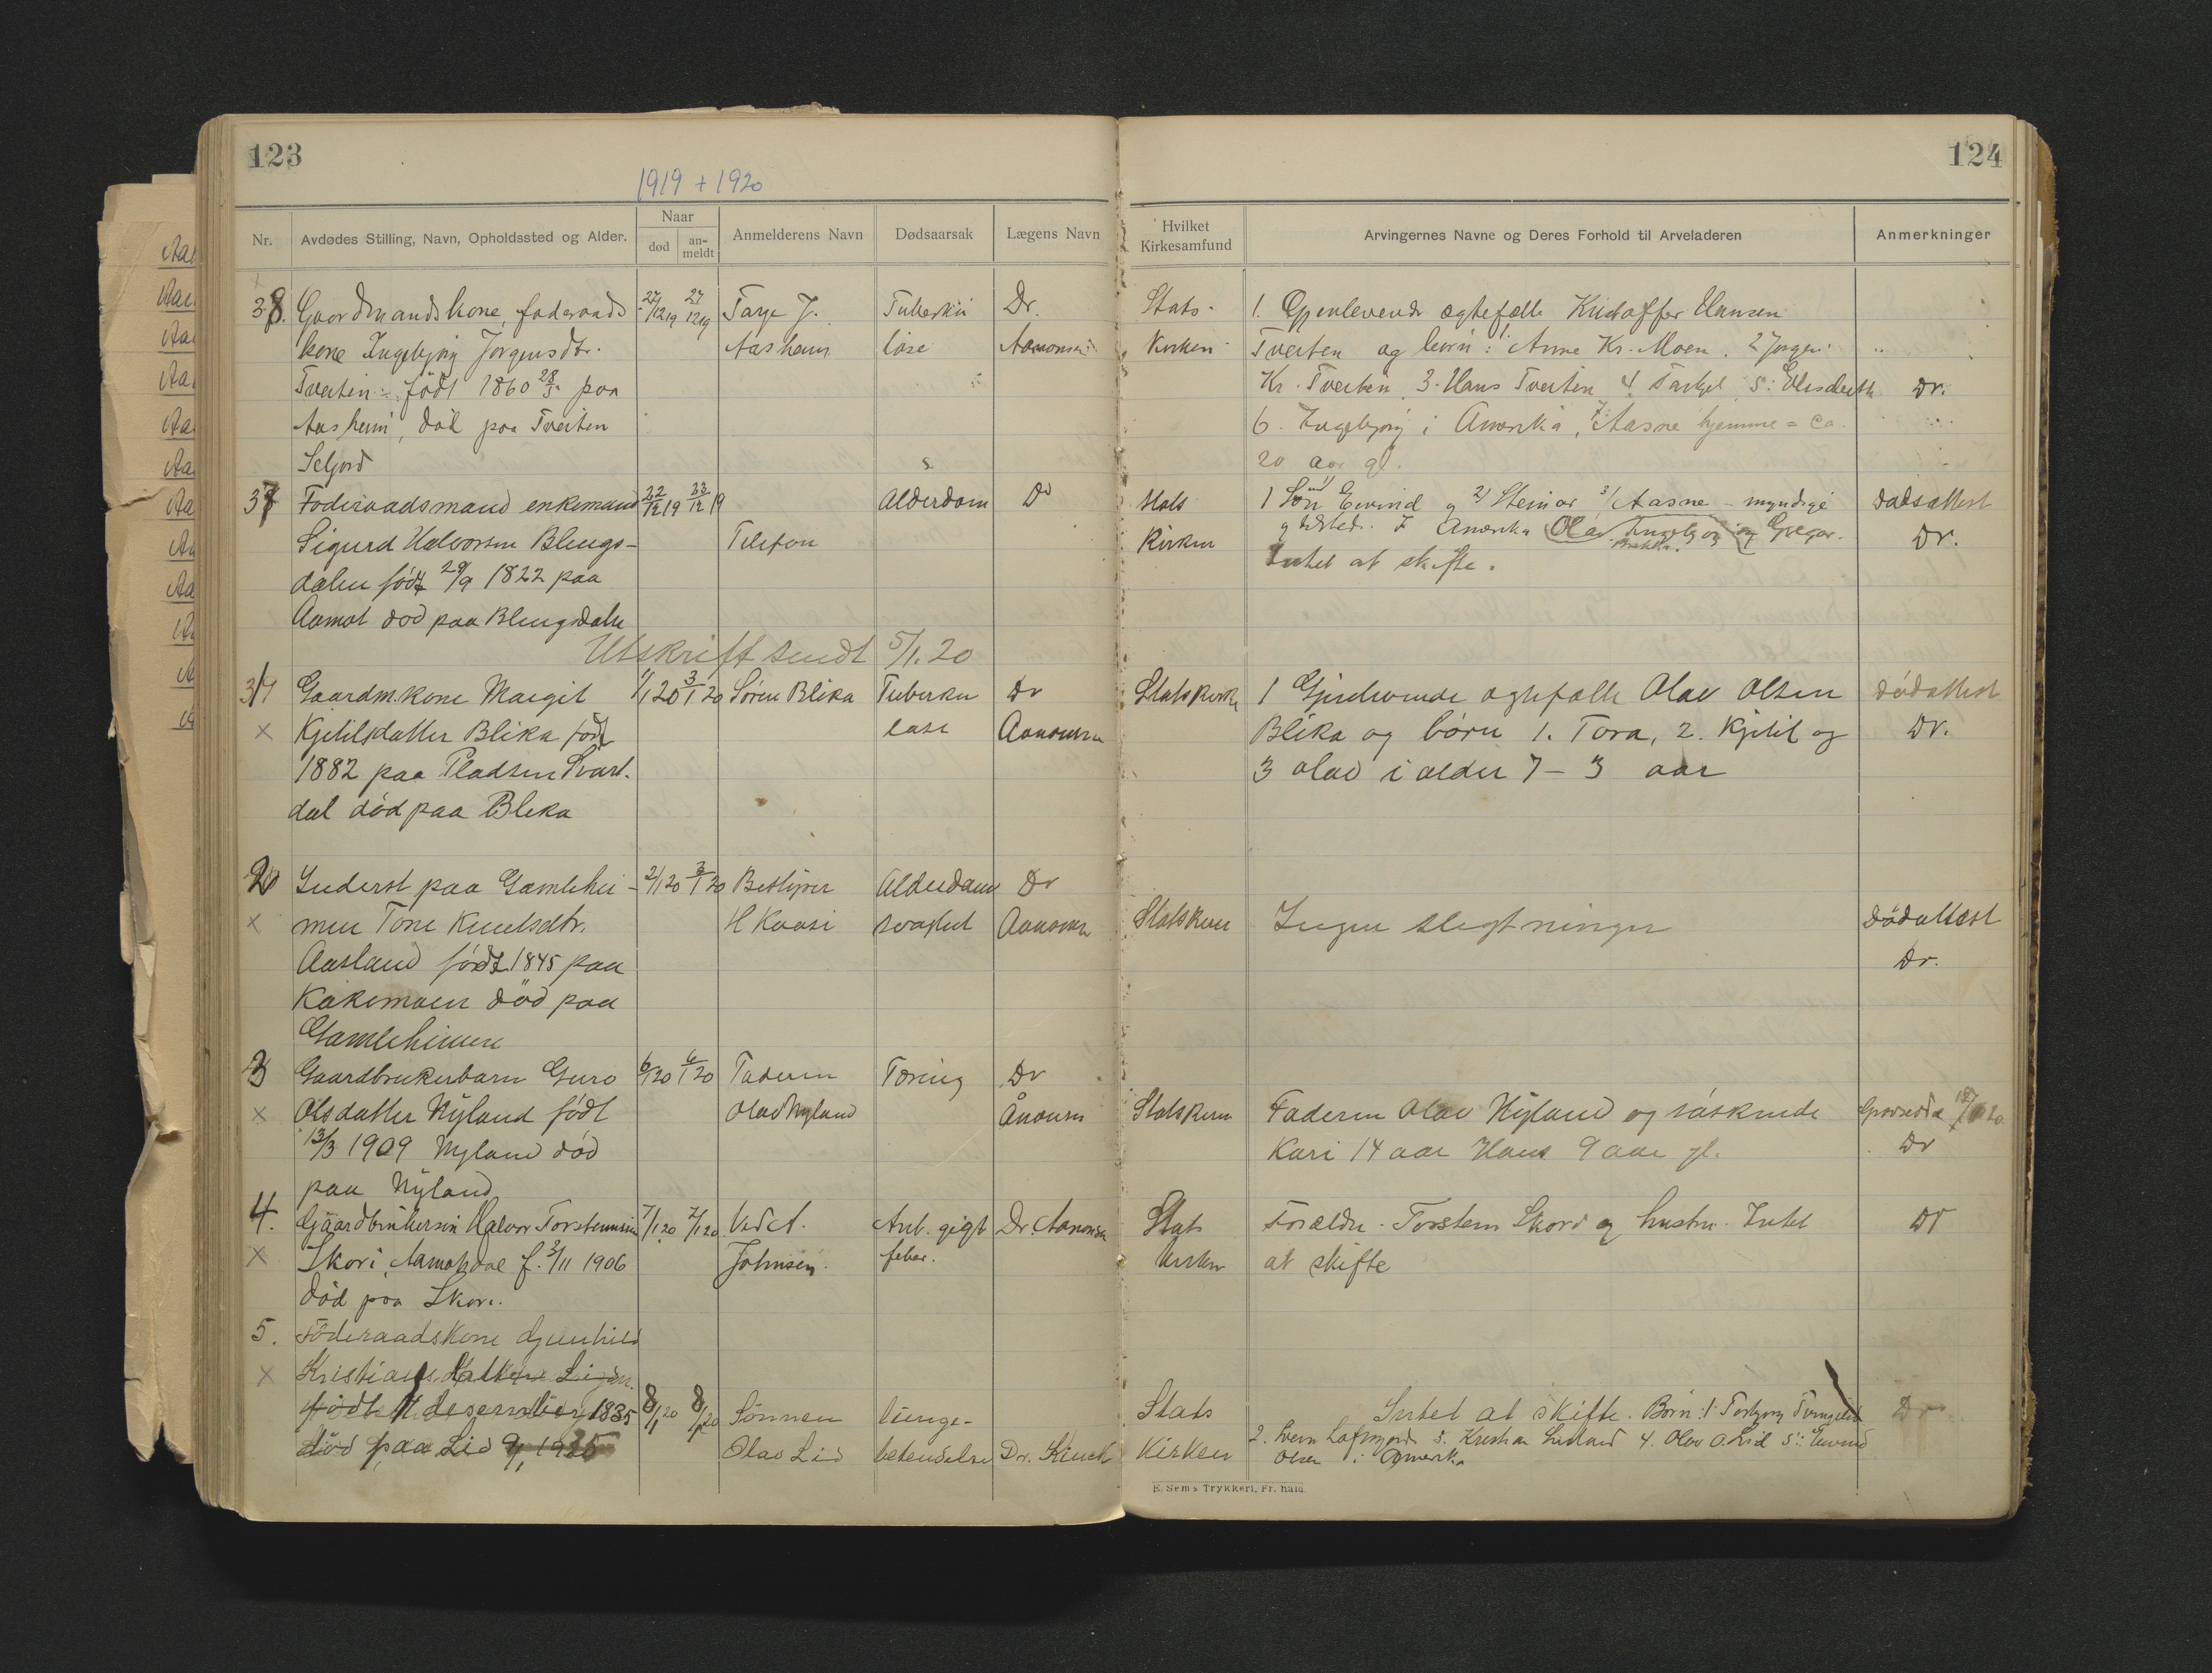 123
124
1919 + 1920
Nr. Avdødes Stilling, Navn, Opholdssted og Alder. Naar død an-meldt Anmelderens Navn Dødsaarsak Lægens Navn Hvilket Kirkesamfund Arvingernes Navne og Deres Forhold til Arveladeren Anmerkninger
38. Gaardmandskone, foderaads 27/12 19 27/12 19 Tarje J. Tuberku Dr. Stats- 1. Gjenlevende ægtefælle Kristoffer Hansen
kone Ingebjørg Jørgensdtr. Aasheim løse Aanonsen Kirken Tveiten og børn: 1. Anne Kr. Moen. 2 Jørgen
Tveiten født 1860 28/5 paa Kr. Tveiten, 3. Hans Tveiten 4. Tarkjel, 5: Elisabeth Dr.
Aasheim, død paa Tveiten 6. Ingebjørg i Amerika, 7. Aasne hjemme = ca.
Seljord 20 aar gl.
37 Foderaadsmand enkemand 22/12 19 23/12 19 Alderdom Dr Stats 1 Søn Eivind og 2) Steinar 3/ Aasne - myndige Dødsattest
Sigurd Halvorsen Blengs- Telefon Kirken I Amerika Olav, Ingebjørg og Gregar. Dr.
dalen født 29/9 1822 paa Intet at skifte.
Aamot død paa Blengsdalen
Utskrift sendt 5/1.20
1 Gaardm.kone Margit 1/1 20 3/1 20 Søren Blika Tuberku Dr Statskirk 1 Gjenlevende ægtefælle Olav Olsen Dødsattest
x Kjetilsdatter Blika født løse Aanonsen Blika og børn 1. Tora, 2. Kjetil og Dr.
1882 paa Pladsen Svart- 3 Olav i alder 7 - 3 aar
dal død paa Blika
2 Inderst paa Gamlehei- 2/1 20 3/1 20 Bestyrer Alderdoms Dr
x men Tone Knutsdtr. H Kaasi svakhet Aanonsen Statskirken Ingen slegtninger Dødsattest
Aasland født 1845 paa Dr.
Kakemoen død paa
Gamleheimen
3 Gaardbrukerbarn Guro 6/1 20 6/1 20 Faderen Tæring Dr
x Olsdatter Nyland født Olav Nyland Ånonsen Statskirken Faderen Olav Nyland og søskende
13/3 1909 Nyland død Kari 14 aar Hans 9 aar gl. Dr
paa Nyland
4. Gaardbrukersøn Halvor Torstensen 7/1 20 7/1 20 Ved A. Ak. gigt Dr. Aanonsen Stats Forældre. Torstein Skori og hustru. Intet Dr
x Skori, Aamotsdal f. 3/11 1906 Johnsen. feber. Kirken at skifte
Død paa Skori.
5. Føderaadskone Gunhild
x Kristians
født desember 1835 8/1 20 8/1 20 Sønnen lunge- Stats Intet at skifte. Børn: 1. Torbjørg Dr
død paa Lid Olav Lid betendelse Dr. Kinck Kirken 4. Olav O. Lid 5: Eivind
Olsen i Amerika
E. Sems Trykkeri, Fr. hald.